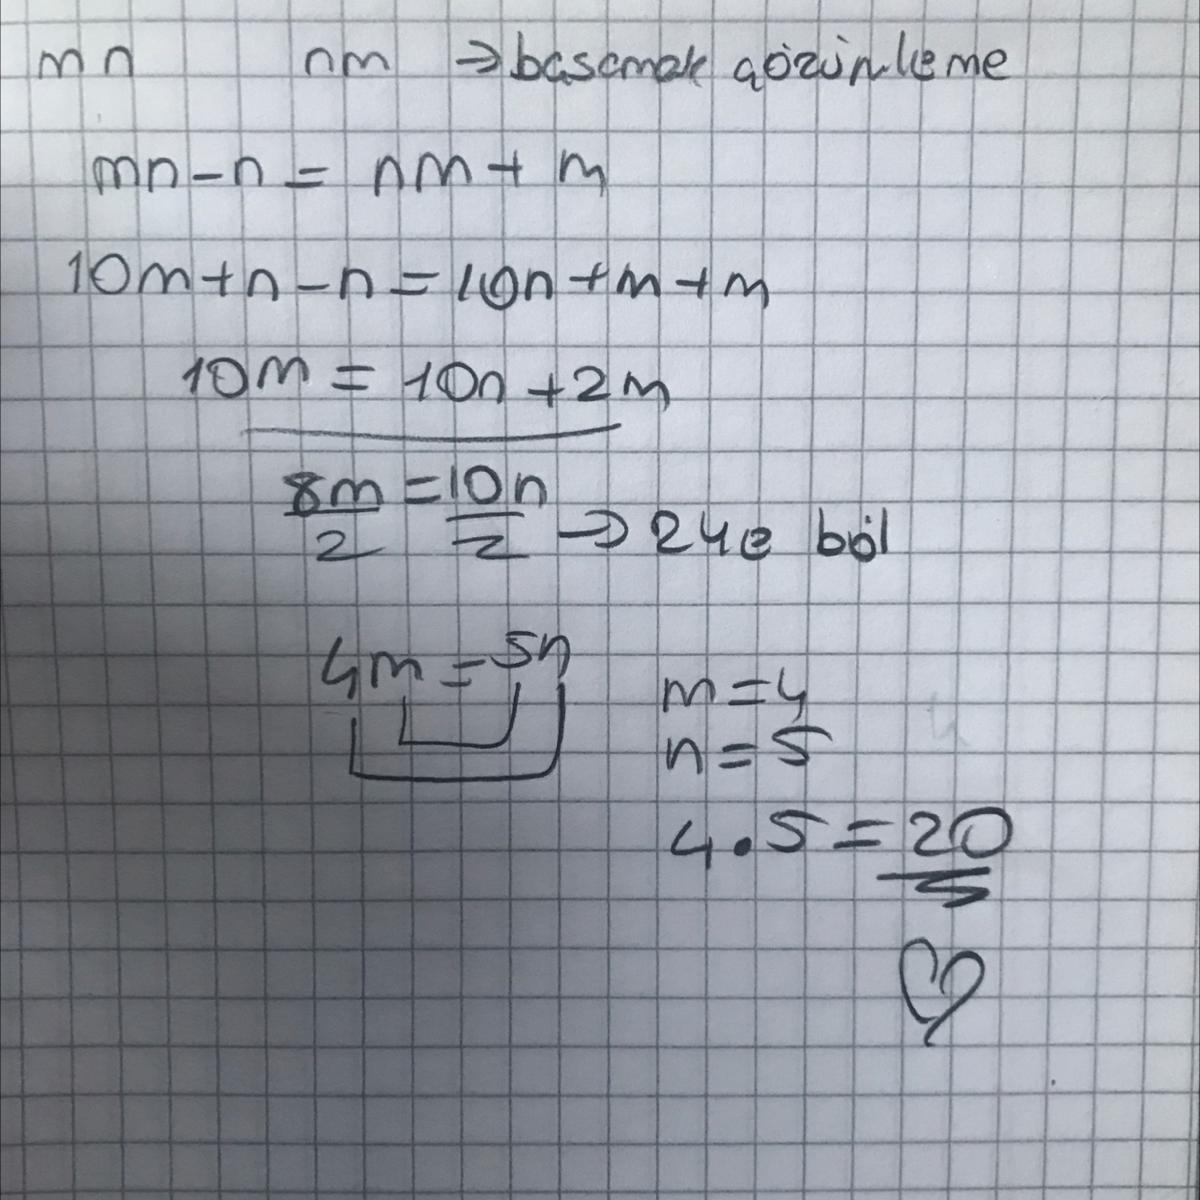 mn nm → basamak çözümleme
mn - n = nm + m
10m + n - n = 10n + m + m
10m = 10n + 2m
8m/2 = 10n/2 → 2'ye böl
4m = 5n
m = 4
n = 5
4 . 5 = 20